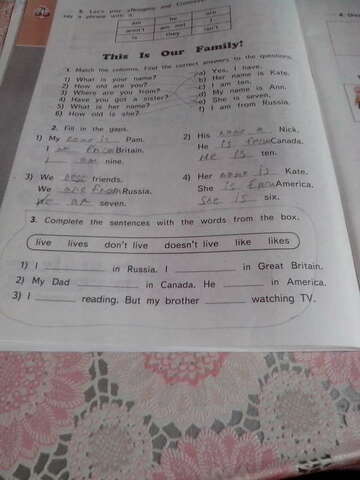 am he are
aren't am not I
is they isn't
This Is Our Family!
1. Match the columns. Find the correct answers to the questions.
1) What is your name? a) Yes, I have.
2) How old are you? b) Her name is Kate.
3) Where are you from? c) I am ten.
4) Have you got a sister? d) My name is Ann.
5) What is her name? e) She is seven.
6) How old is she? f) I am from Russia.
2. Fill in the gaps.
1) My name is Pam.
I from Britain.
I am nine.
2) His name is Nick.
He is from Canada.
He is ten.
3) We friends.
We are from Russia.
We are seven.
4) Her name is Kate.
She is from America.
She is six.
3. Complete the sentences with the words from the box.
live lives don't live doesn't live like likes
1) I ______ in Russia. I ______ in Great Britain.
2) My Dad ______ in Canada. He ______ in America.
3) I ______ reading. But my brother ______ watching TV.